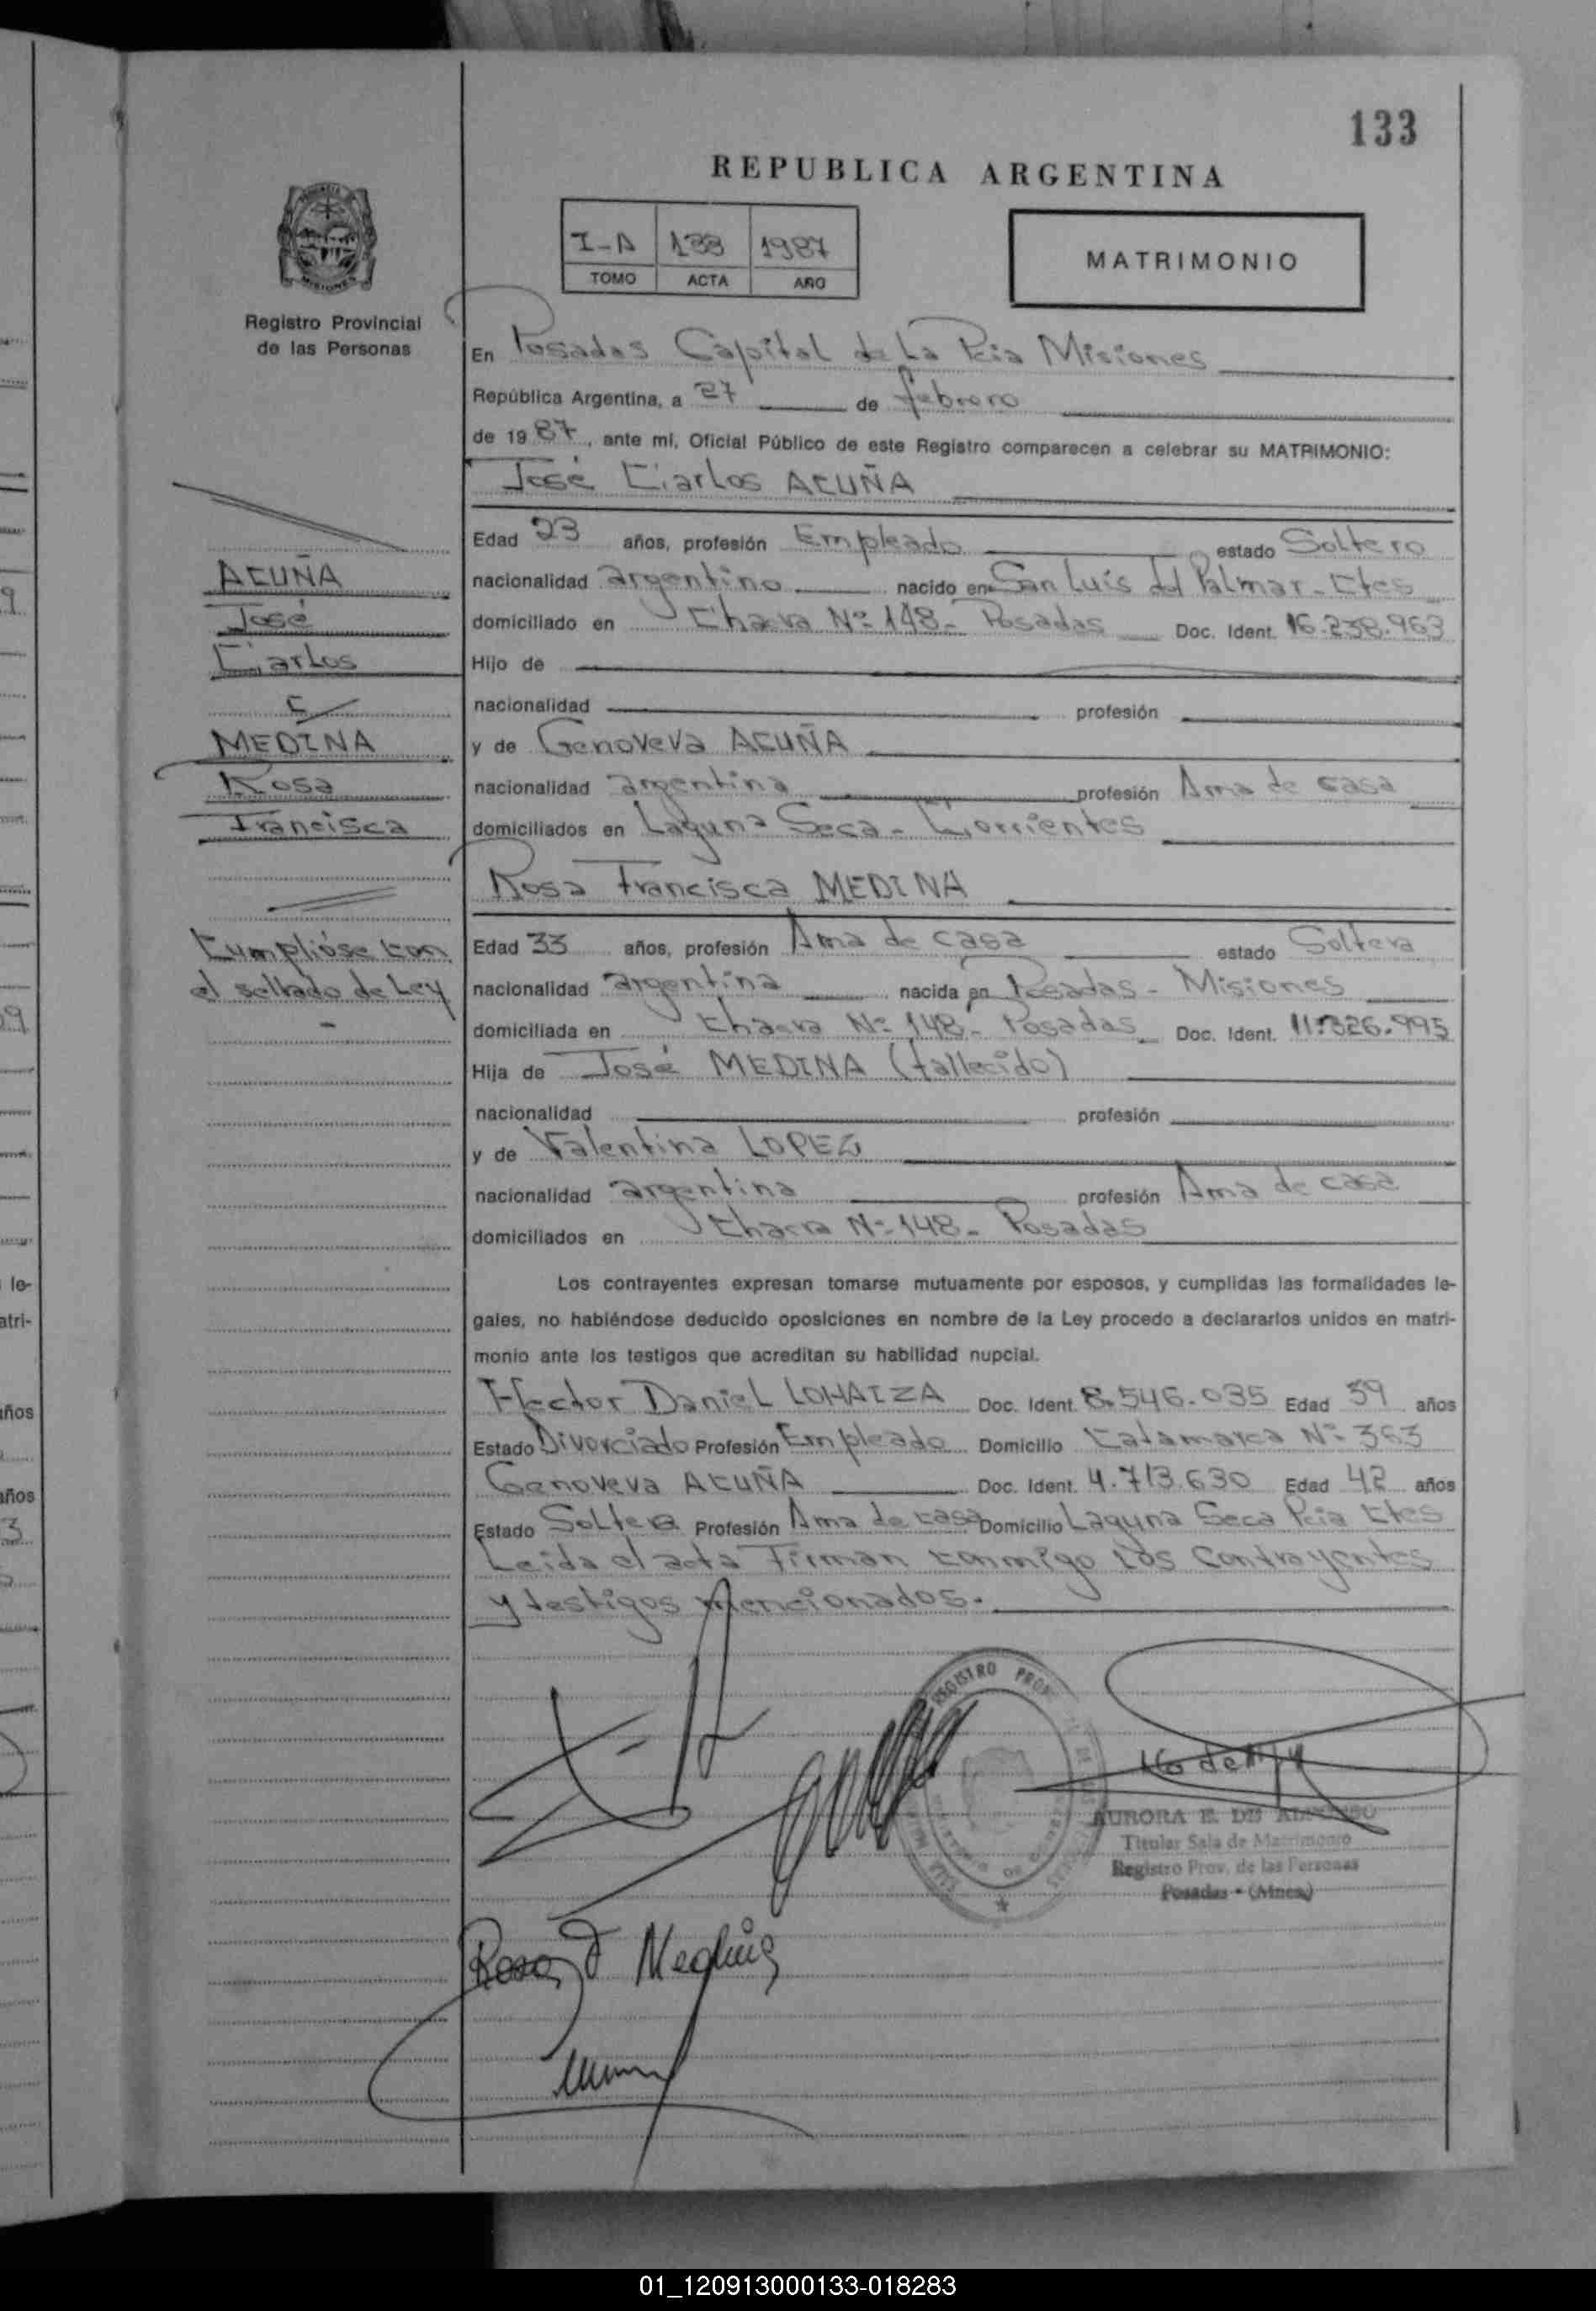 133
REPUBLICA ARGENTINA
I-A 133 1987
TOMO ACTA AÑO
MATRIMONIO
MISIONES
Registro Provincial
de las Personas
En Posadas Capital de La Pcia Misiones
República Argentina, a 27 de febrero
de 1987, ante mí, Oficial Público de este Registro comparecen a celebrar su MATRIMONIO:
José Carlos ACUÑA
Edad 23 años, profesión Empleado estado Soltero
nacionalidad argentino nacido en San Luis del Palmar - Ctes
domiciliado en Chacra Nº 148 - Posadas Doc. Ident. 16.238.963
Hijo de
nacionalidad profesión
y de Genoveva ACUÑA
nacionalidad argentina profesión Ama de casa
domiciliados en Laguna Seca - Corrientes
Rosa Francisca MEDINA
Edad 33 años, profesión Ama de casa estado Soltera
nacionalidad argentina nacida en Posadas - Misiones
domiciliada en Chacra Nº 148 - Posadas Doc. Ident. 11.326.995
Hija de José MEDINA (fallecido)
nacionalidad profesión
y de Valentina LOPEZ
nacionalidad argentina profesión Ama de casa
domiciliados en Chacra Nº 148 - Posadas
Los contrayentes expresan tomarse mutuamente por esposos, y cumplidas las formalidades le-
gales, no habiéndose deducido oposiciones en nombre de la Ley procedo a declararlos unidos en matri-
monio ante los testigos que acreditan su habilidad nupcial.
Hector Daniel LOHAIZA Doc. Ident. 8.546.035 Edad 39 años
Estado Divorciado Profesión Empleado Domicilio Catamarca Nº 363
Genoveva ACUÑA Doc. Ident. 4.713.630 Edad 42 años
Estado Soltera Profesión Ama de casa Domicilio Laguna Seca Pcia Ctes
Leida el acta Firman conmigo Los Contrayentes
y testigos mencionados.
ACUÑA
José
Carlos
c
MEDINA
Rosa
Francisca
Cumplióse con
el sellado de Ley
REGISTRO
AURORA E. DE
Titular Sala de Matrimonio
Registro Prov. de las Personas
Posadas - (Mnes)
Rosa F Medina
le-
atri-
años
años
01_120913000133-018283